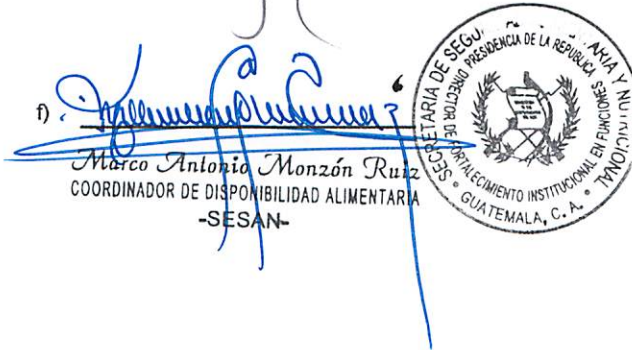 f).
Marco Antonio Monzón Ruiz
COORDINADOR DE DISPONIBILIDAD ALIMENTARIA
-SESAN-
SECRETARIA DE SEGU ARIA Y NUTRICIONAL
PRESIDENCIA DE LA REPUBLICA
DIRECTOR DE FORTALECIMIENTO INSTITUCIONAL EN FUNCIONES
GUATEMALA, C. A.